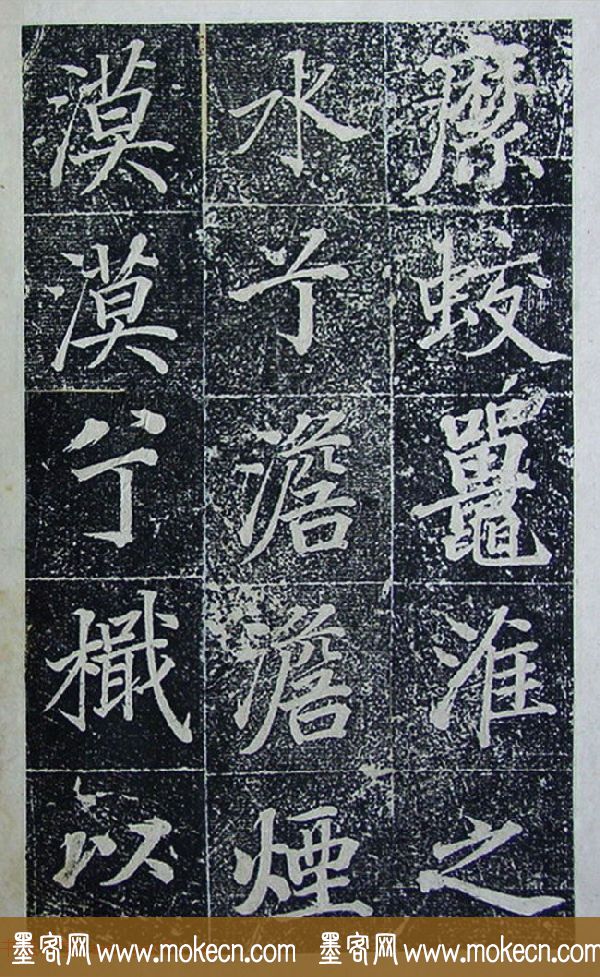 蛟鼉淮之
水兮澹澹煙
漠漠兮以
墨客网 www.mokecn.com 墨客网 www.mokecn.com